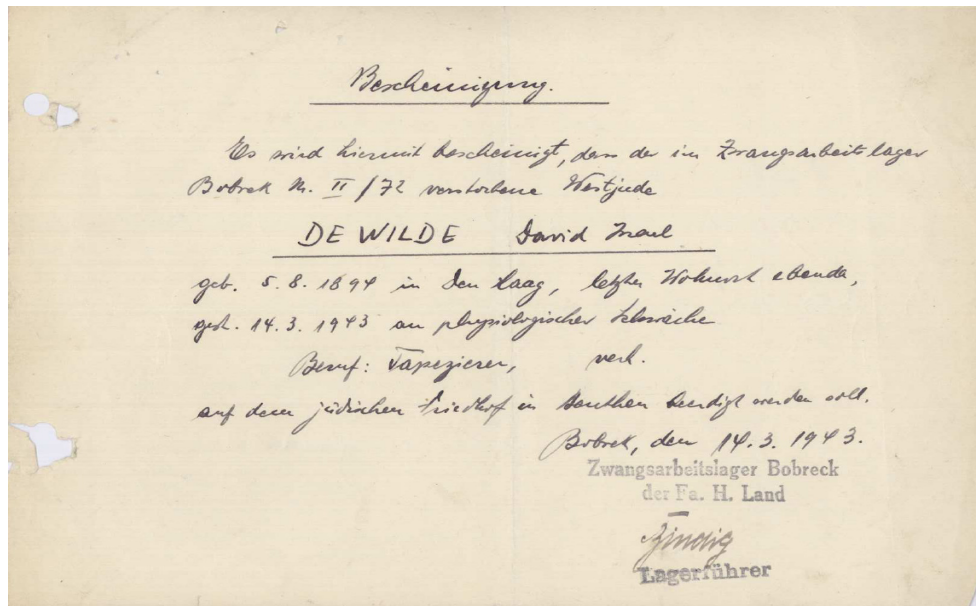 Bescheinigung.
Es wird hiermit bescheinigt, dass der im Zwangsarbeitslager
Bobrek Nr. II / 72 verstorbene Westjude
DE WILDE David Israel
geb. 5. 8. 1894 in Den Haag, letzter Wohnort ebenda,
gest. 14. 3. 1943 an physiologischer Schwäche
Beruf: Tapezierer, verh.
auf dem jüdischen Friedhof in Beuthen beerdigt werden soll.
Bobrek, den 14. 3. 1943.
Zwangsarbeitslager Bobreck
der Fa. H. Land
Lagerführer